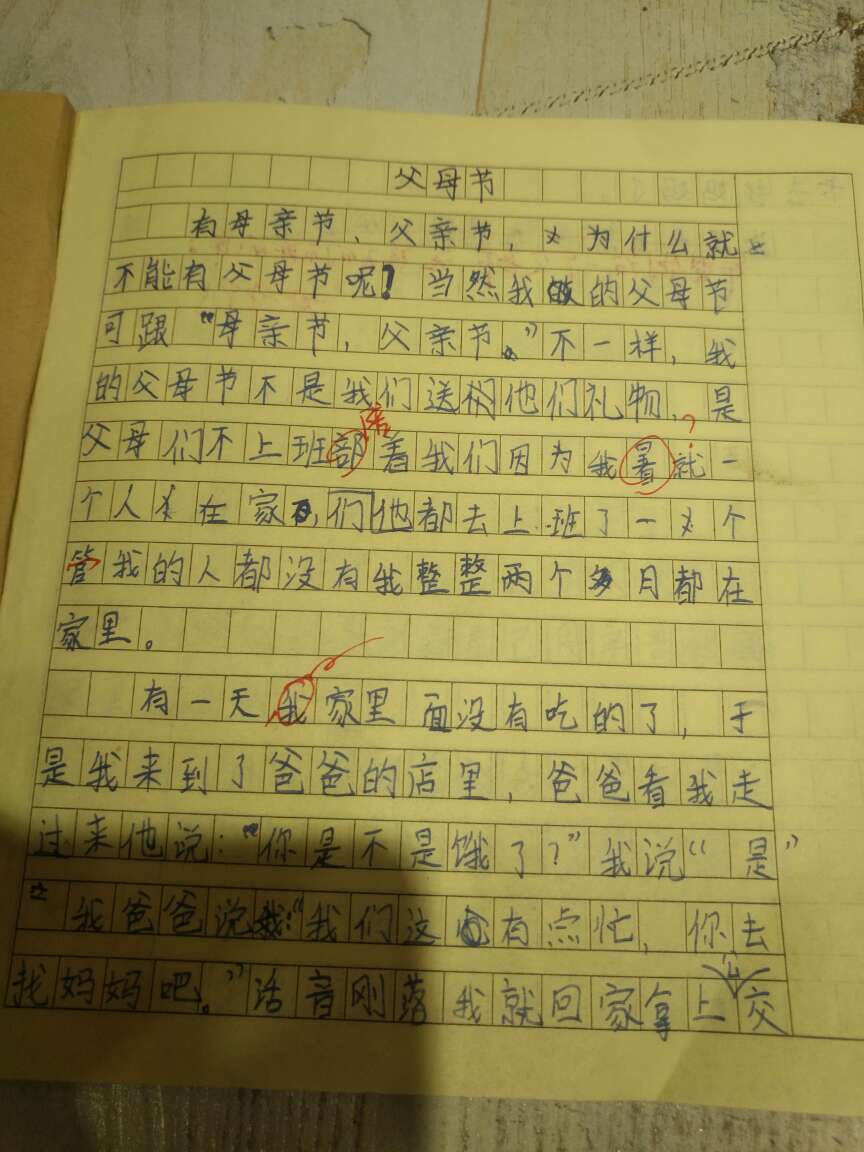 父母节
有母亲节，父亲节，为什么就
不能有父母节呢！当然我的父母节
可跟“母亲节，父亲节。”不一样，我
的父母节不是我们送他们礼物，是
父母们不上班部陪着我们因为我暑就一
个人在家，们他都去上班了一个
管我的人都没有我整整两个月都在
家里。
有一天我家里面没有吃的了，于
是我来到了爸爸的店里，爸爸看我走
过来他说：“你是不是饿了？”我说“是”
我爸爸说：“我们这有点忙，你去
找妈妈吧。”话音刚落我就回家拿上交